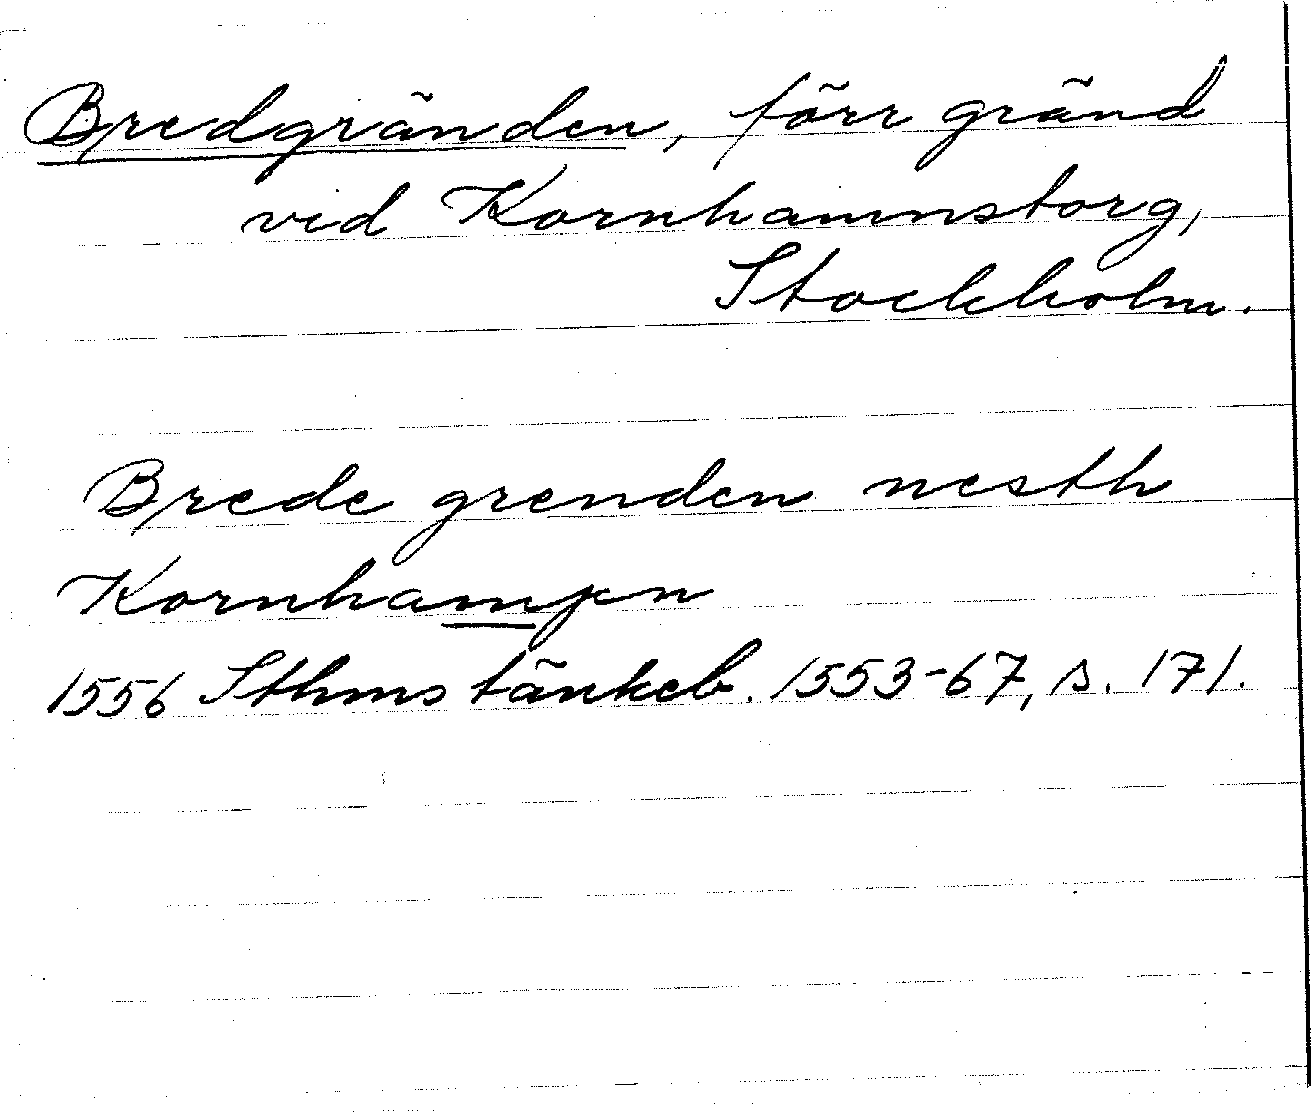 Bredgränden, förr gränd
vid Kornhamnstorg,
Stockholm.
Brede grenden nesth
Kornhampn
1556 Sthms tänkeb. 1553-67, s. 171.